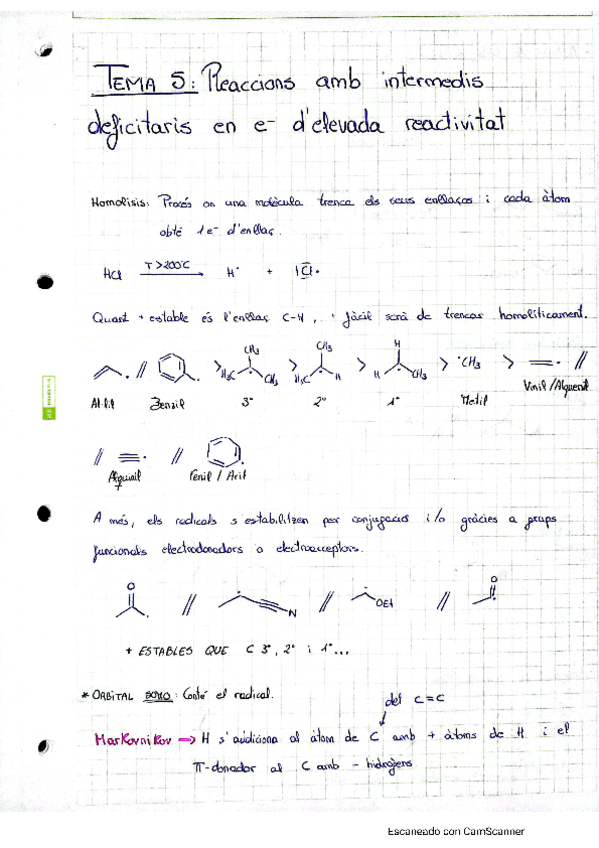 TEMA 5: Reaccions amb intermedis
deficitaris en e- d'elevada reactivitat
Homolisis: Procés on una molècula trenca els seus enllaços i cada àtom
obté 1e- d'enllaç.
HCl T>200ºC H· + |Cl·
Quant + estable és l'enllaç C-H, + fàcil serà de trencar homolíticament.
. // . > H3C CH3 CH3 > H3C CH3 H > H H CH3 > ·CH3 > = · //
Al·lil Benzil 3º 2º 1º Metil Vinil/Alquenil
// ≡· //
Alquinil Fenil / Aril
A més, els radicals s'estabilitzen per conjugació i/o gràcies a grups
funcionals electrodonadors o electroacceptors.
O // N // OEt // O
+ ESTABLES QUE C 3º, 2º i 1º...
* ORBITAL SOMO: Conté el radical.
del C=C
Markovnikov => H s'addiciona al àtom de C amb + àtoms de H i el
π-donador al C amb - hidrògens
Escaneado con CamScanner